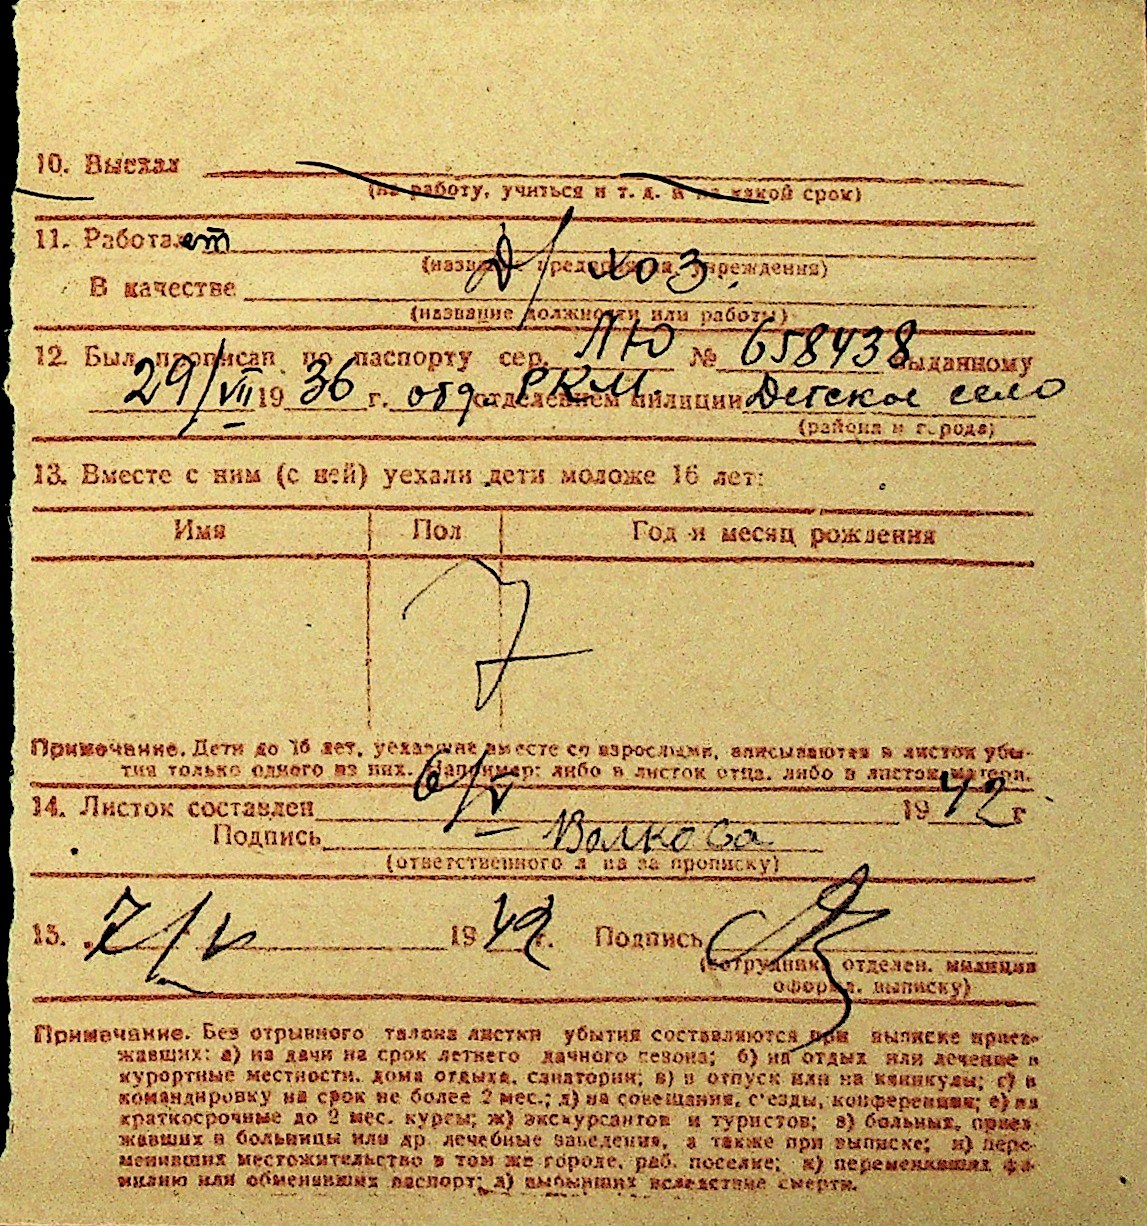 10. Выехал
(на работу, учиться и т. д. и на какой срок)
11. Работает Д/хоз.
(название предприятия, учреждения)
В качестве
(название должности или работы)
12. Был прописан по паспорту сер. ЛЮ № 658438 выданному
29/VII 1936 г. отд. РКМ. отделением милиции Детское село
(района и города)
13. Вместе с ним (с ней) уехали дети моложе 16 лет:
Имя Пол Год и месяц рождения
Примечание. Дети до 16 лет, уехавшие вместе со взрослыми, вписываются в листок убы-
тия только одного из них. Например: либо в листок отца, либо в листок матери.
14. Листок составлен 6/V 1942 г
Подпись Волкова
(ответственного лица за прописку)
15. 7/V 1942 г. Подпись
(сотрудника отделен. милиции
оформ. выписку)
Примечание. Без отрывного талона листки убытия составляются при выписке приез-
жавших: а) на дачи на срок летнего дачного сезона; б) на отдых или лечение в
курортные местности, дома отдыха, санатории; в) в отпуск или на каникулы; г) в
командировку на срок не более 2 мес.; д) на совещания, с'езды, конференции; е) на
краткосрочные до 2 мес. курсы; ж) экскурсантов и туристов; з) больных, приез-
жавших в больницы или др. лечебные заведения, а также при выписке; и) пере-
менивших местожительство в том же городе, раб. поселке; к) переменивших фа-
милию или обменивших паспорт; л) выбывших вследствие смерти.